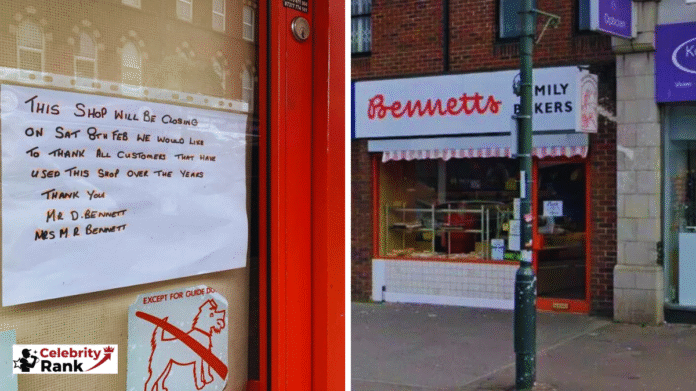 THIS SHOP WILL BE CLOSING
ON SAT 8TH FEB WE WOULD LIKE
TO THANK ALL CUSTOMERS THAT HAVE
USED THIS SHOP OVER THE YEARS
THANK YOU
MR D. BENNETT
MRS M R BENNETT
EXCEPT FOR GUIDE
Celebrity
Rank
Bennetts
MILY
BAKERS